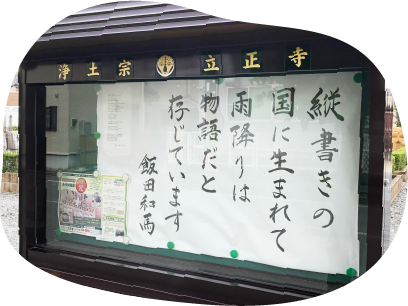 浄土宗 立正寺
縦書きの
国に生まれて
雨降りは
物語だと
存じています
飯田和馬